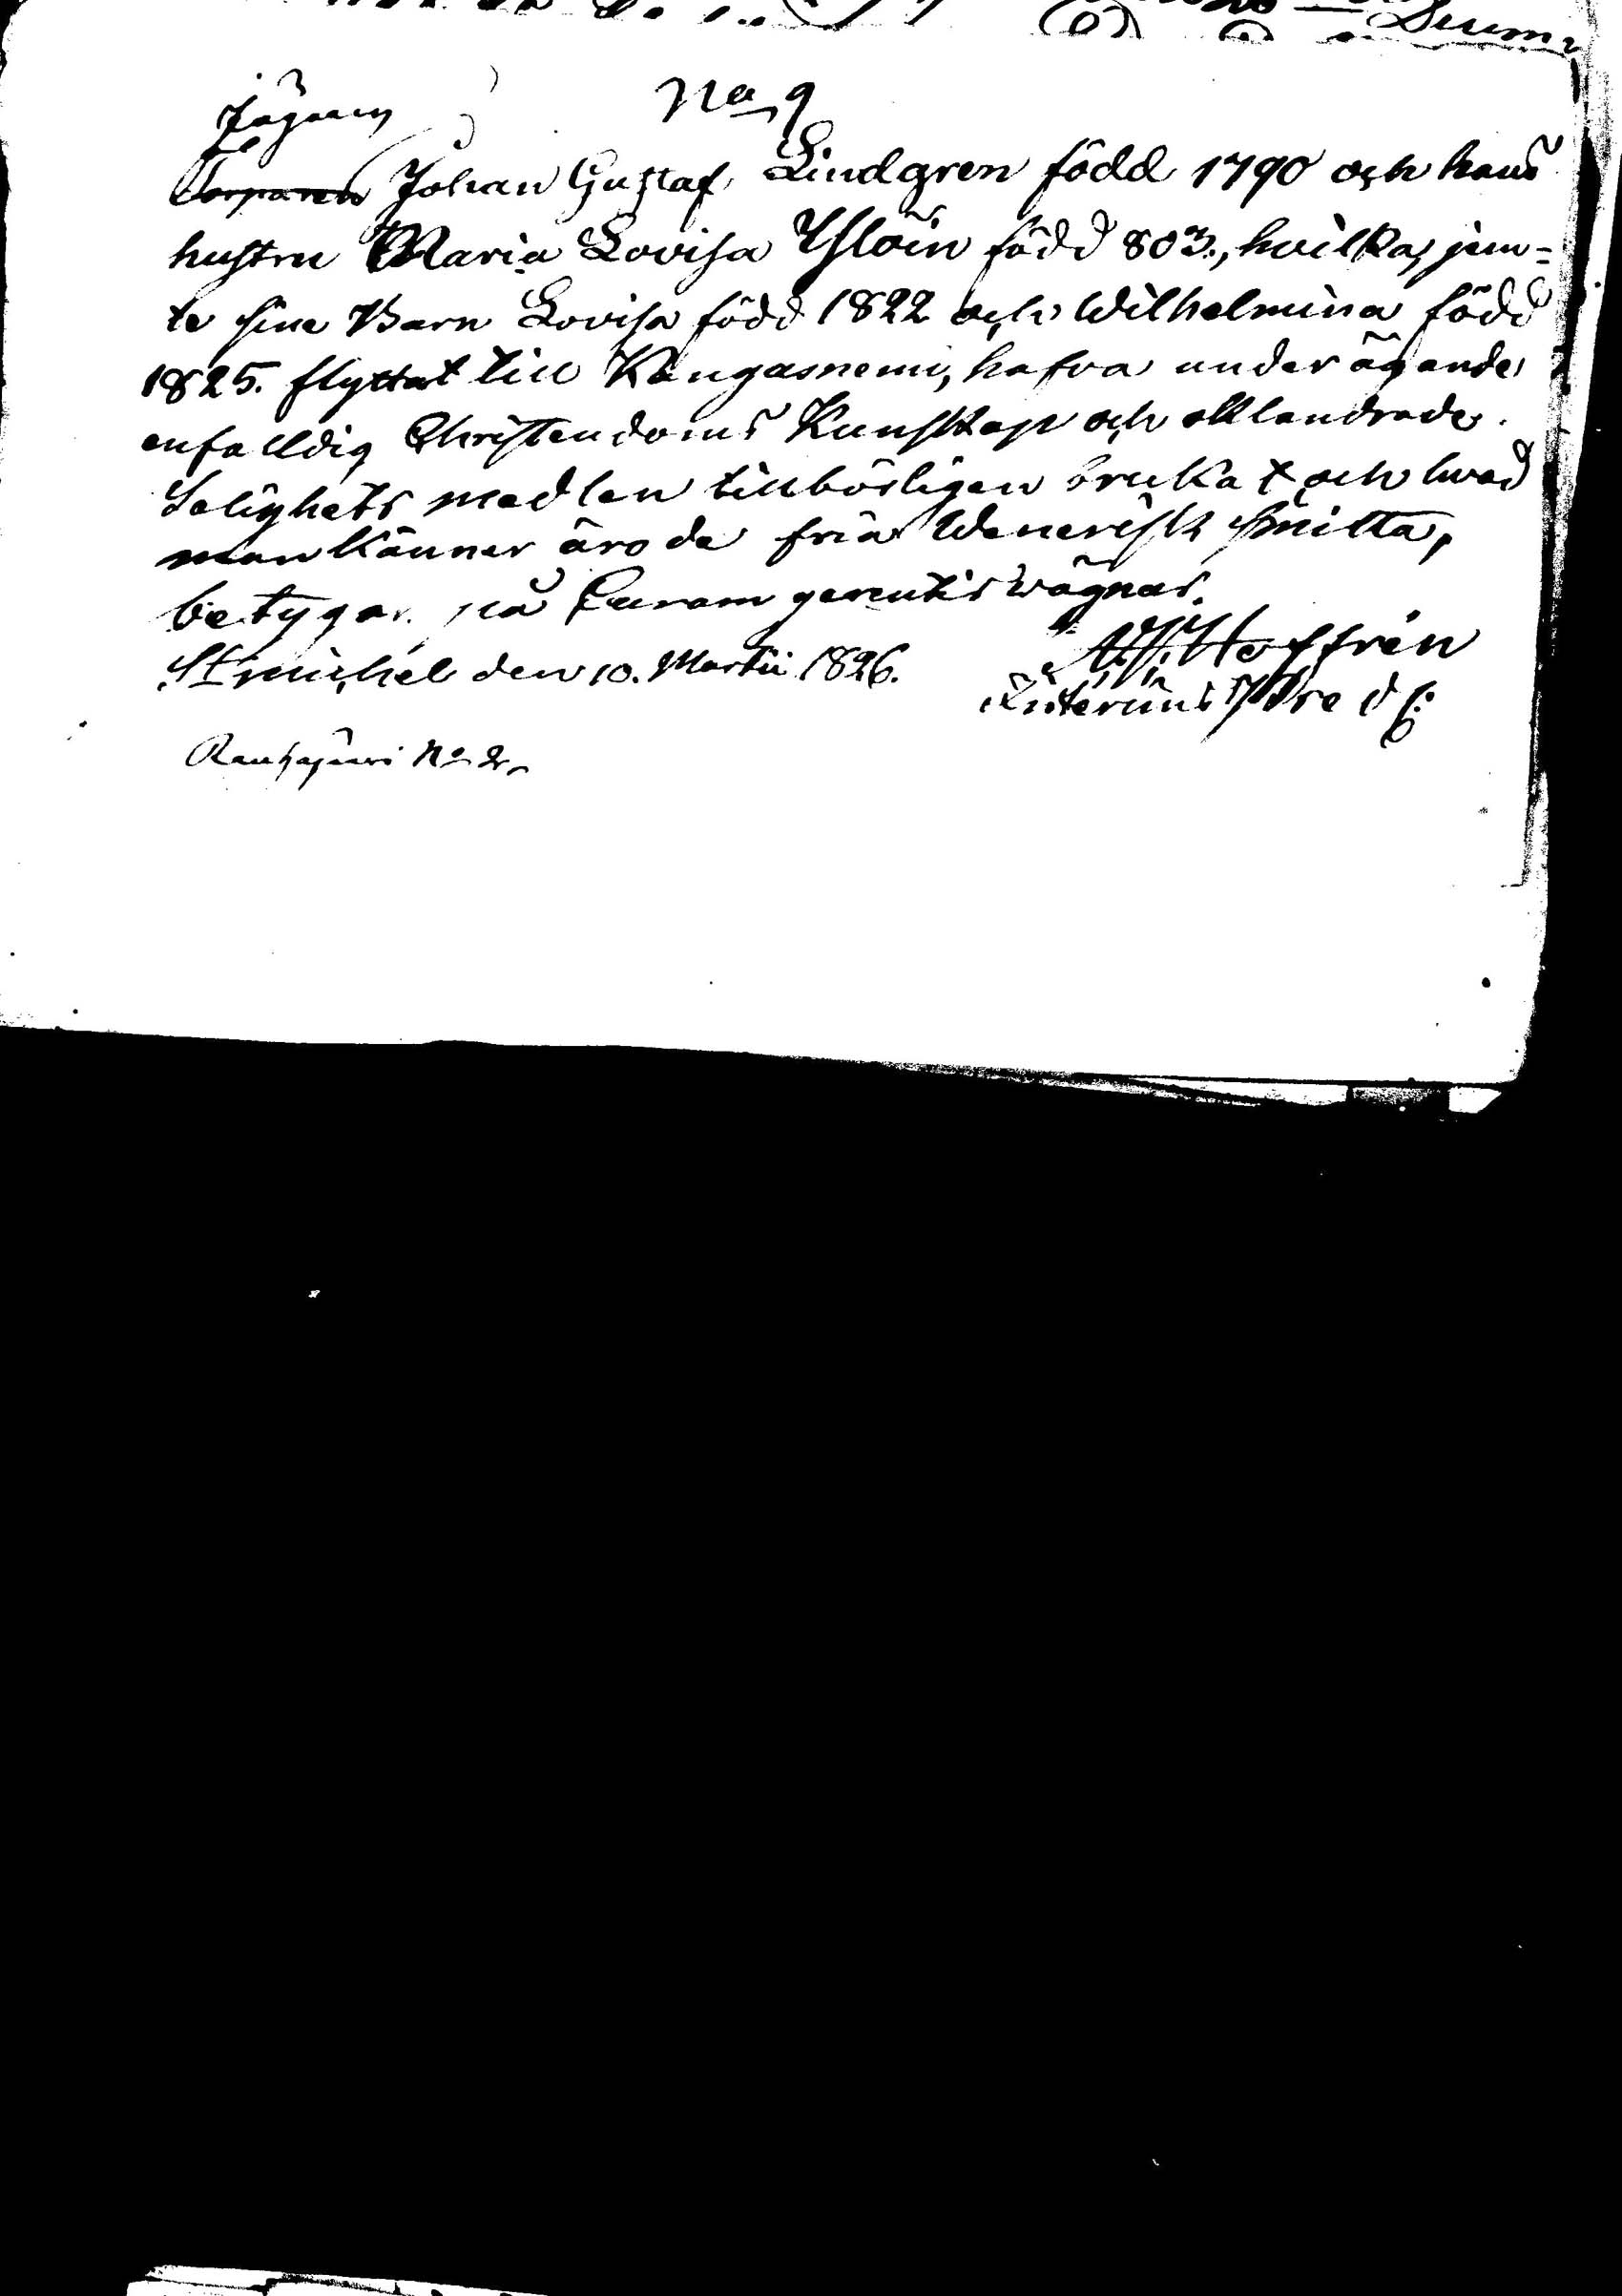 No 9
Jägaren
Torparen Johan Gustaf Lindgren född 1790 och hans
hustru Maria Lovisa Ylöin född 803., hvilka, jem-
te sine Barn Lovisa född 1822 och Wilhelmina född
1825. flyttat till Kangasnemi, hafva under ägande
enfalldig Christendoms Kunskap och oklandrade
Salighets medlen tillbörligen brukat och hvad
man känner äro de fria Wenerisk smitta,
betygar. på Euram gerentis wägnar.
St michel den 10. Martii 1826.
Hoffrén
Interims Pred
Rauhajärvi No 2